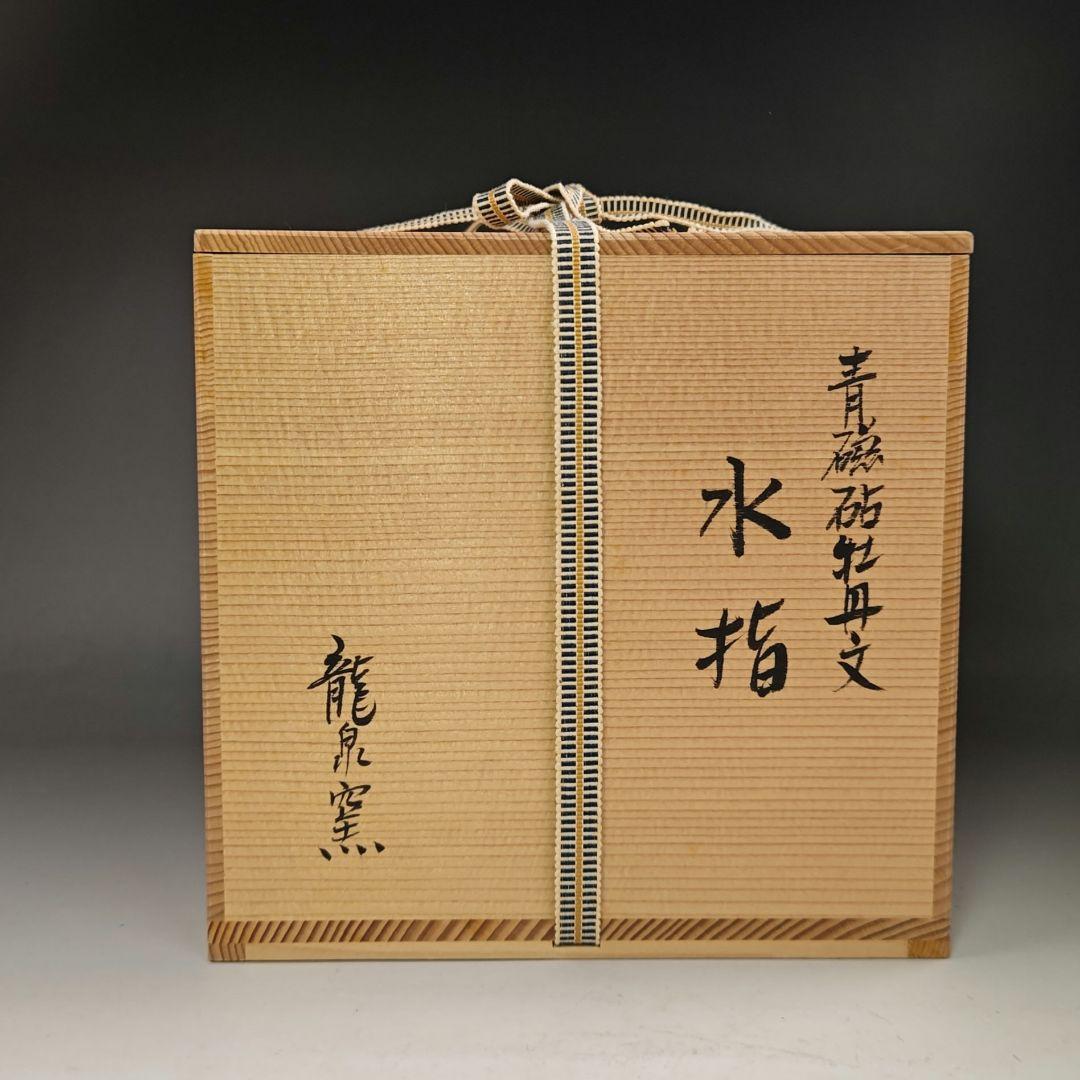 青磁砧牡丹文
水指
龍泉窯